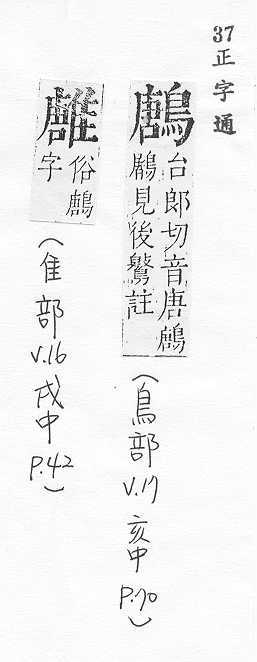 37正字通
鶶
台郎切音唐鶶
鷵見後註
(鳥部 V.17 亥中 P.70)
俗鶶
字
(隹部 V.16 戌中 P.42)